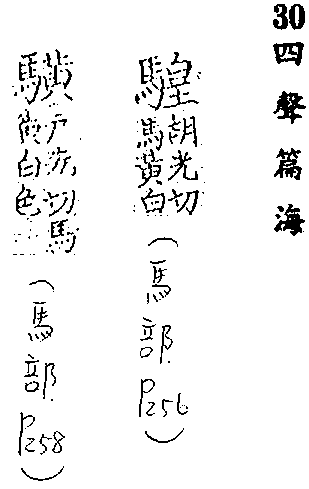 30 四聲篇海
騜胡光切馬黃白(馬部P256)
䮲戶荒切馬黃白色(馬部P258)